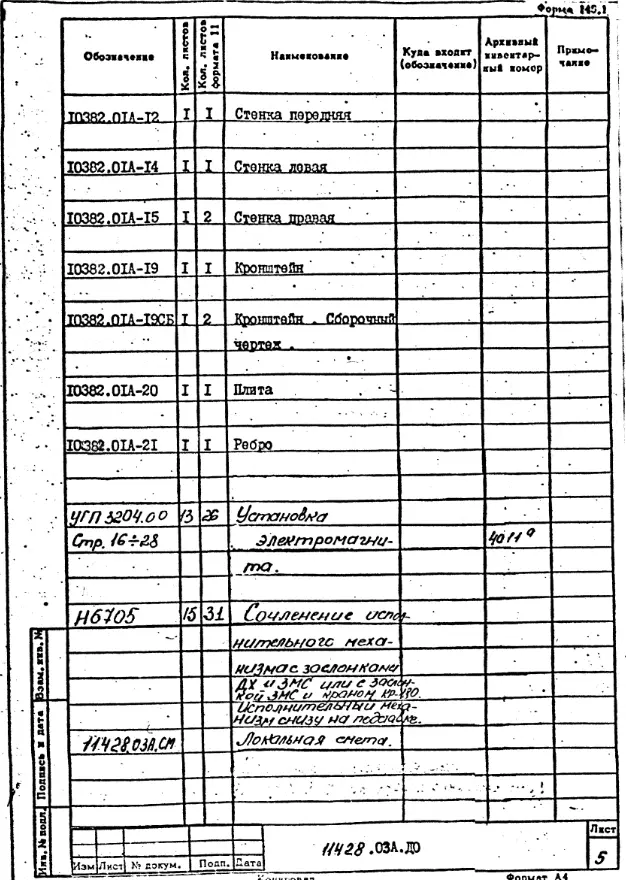 Форма 145.1
Обозначение Кол. листов Кол. листов формата 11 Наименование Куда входит (обозначение) Архивный инвентарный номер Примечание
I0382.0IA-I2 I I Стенка передняя
I0382.0IA-I4 I I Стенка левая
I0382.0IA-I5 I 2 Стенка правая
I0382.0IA-I9 I I Кронштейн
I0382.0IA-I9СБ I 2 Кронштейн . Сборочный
чертеж .
I0382.0IA-20 I I Плита
I0382.0IA-2I I I Ребро
УГП 3204.00 13 26 Установка
Стр. 16÷28 электромагни-
та.
Н6705 15 31 Сочленение испол-
нительного меха-
низма с заслонками
ДХ и ЗМС или с заслон-
кой ЗМС и краном
Исполнительный меха-
низм снизу на подставке.
11428.03А.СМ Локальная смета.
Инв. № подл. Подпись и дата Взам. инв. №
11428.03А.ДО
Лист
5
Изм Лист № докум. Подп. Дата
Копировал Формат А4